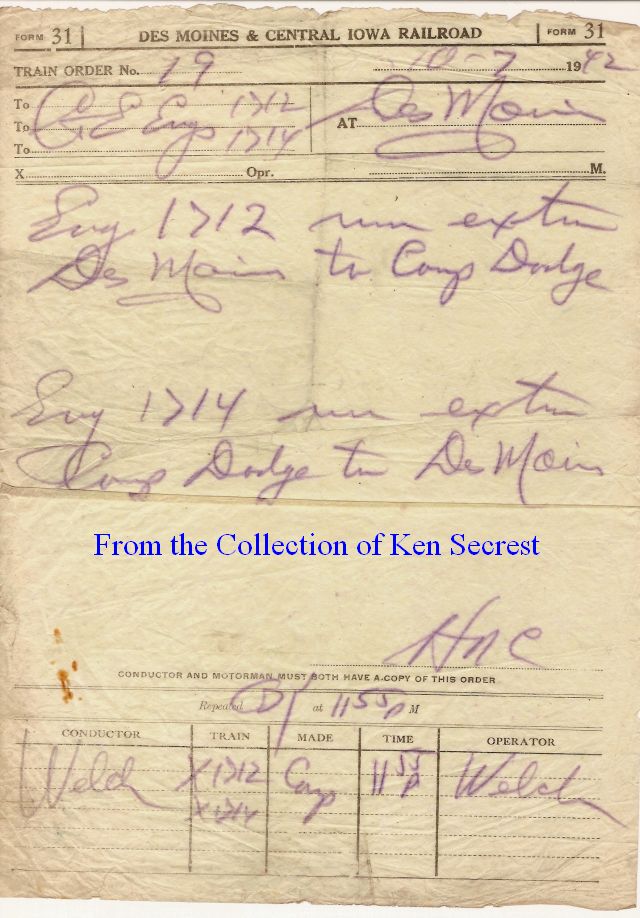 FORM 31 DES MOINES & CENTRAL IOWA RAILROAD FORM 31
TRAIN ORDER No. 19 10-7 1942
To C&E Eng 1712
To 1714 AT Des Moines
To
X Opr. M.
Eng. 1712 run extra
Des Moines to Camp Dodge
Eng 1714 run extra
Camp Dodge to Des Moines
From the Collection of Ken Secrest
HNC
CONDUCTOR AND MOTORMAN MUST BOTH HAVE A COPY OF THIS ORDER
Repeated at 1155 P M
CONDUCTOR TRAIN MADE TIME OPERATOR
Welch X1712 Comp 1155 P Welch
X1714